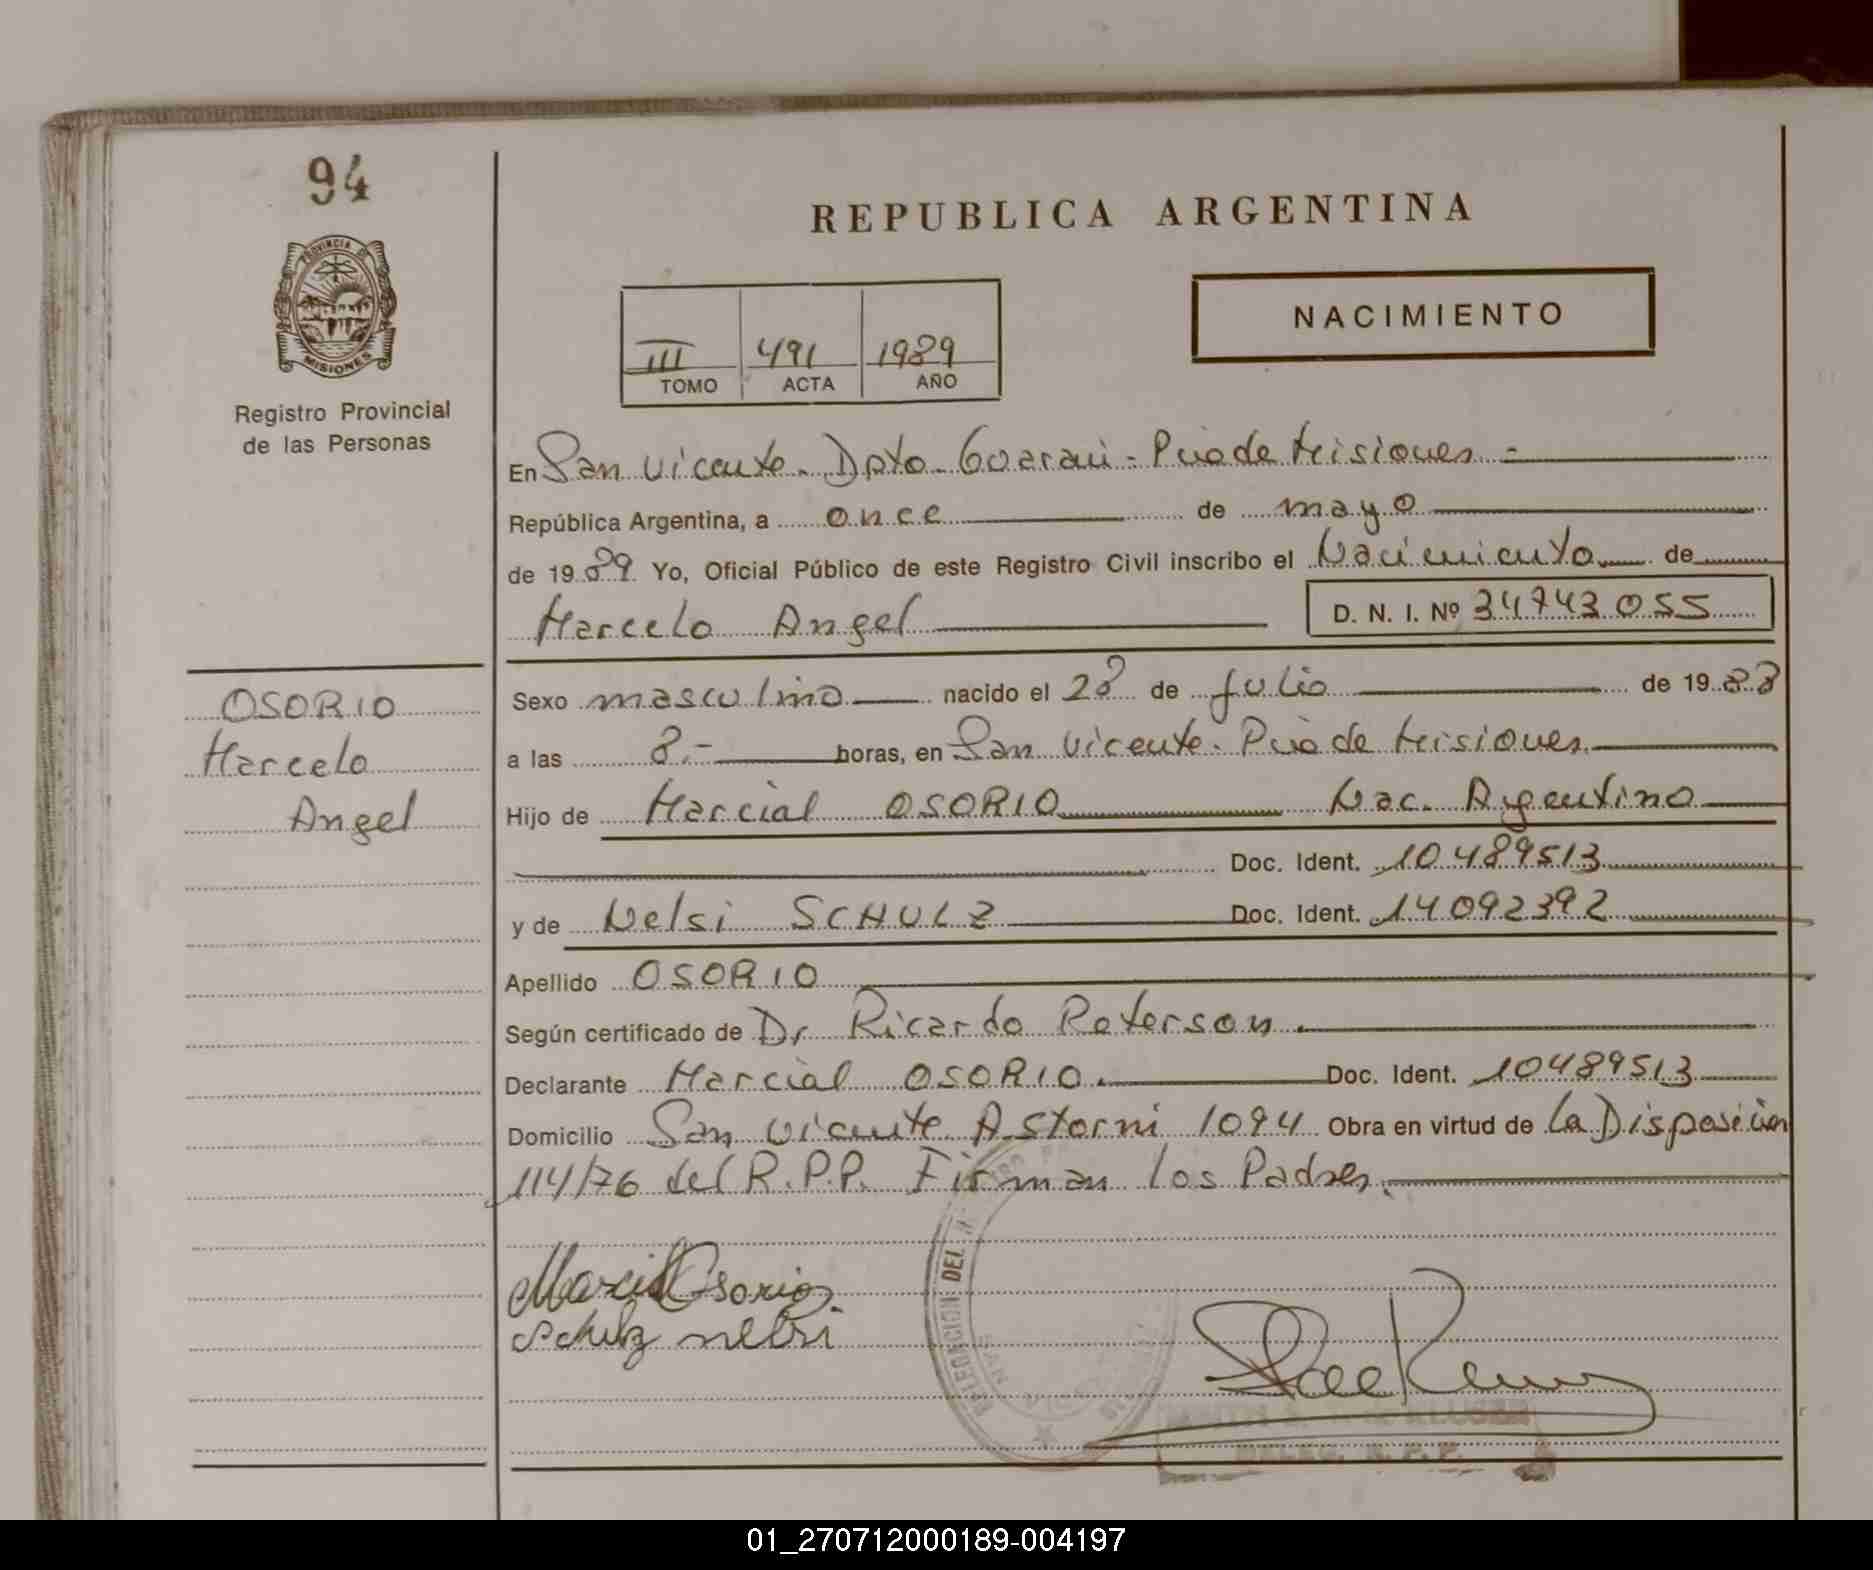 94
PROVINCIA DE
MISIONES
Registro Provincial
de las Personas
REPUBLICA ARGENTINA
NACIMIENTO
III 491 1989
TOMO ACTA AÑO
En San Vicente. Dpto. Guaraní - Pcia de Misiones -
República Argentina, a once de mayo
de 1989 Yo, Oficial Público de este Registro Civil inscribo el Nacimiento de
Marcelo Angel D. N. I. Nº 34743055
OSORIO
Marcelo
Angel
Sexo masculino nacido el 28 de Julio de 1988
a las 8.- horas, en San Vicente. Pcia de Misiones.
Hijo de Marcial OSORIO Nac. Argentino
Doc. Ident. 10489513
y de Nelsi SCHULZ Doc. Ident. 14092392
Apellido OSORIO
Según certificado de Dr Ricardo Roterson.
Declarante Marcial OSORIO. Doc. Ident. 10489513
Domicilio San Vicente Astorni 1094 Obra en virtud de La Disposición
114/76 del R.P.P. Firman los Padres.
Marcial Osorio
Schulz nelsi
DELEGACION DEL
SAN
DELEG. R. P. P.
01_270712000189-004197